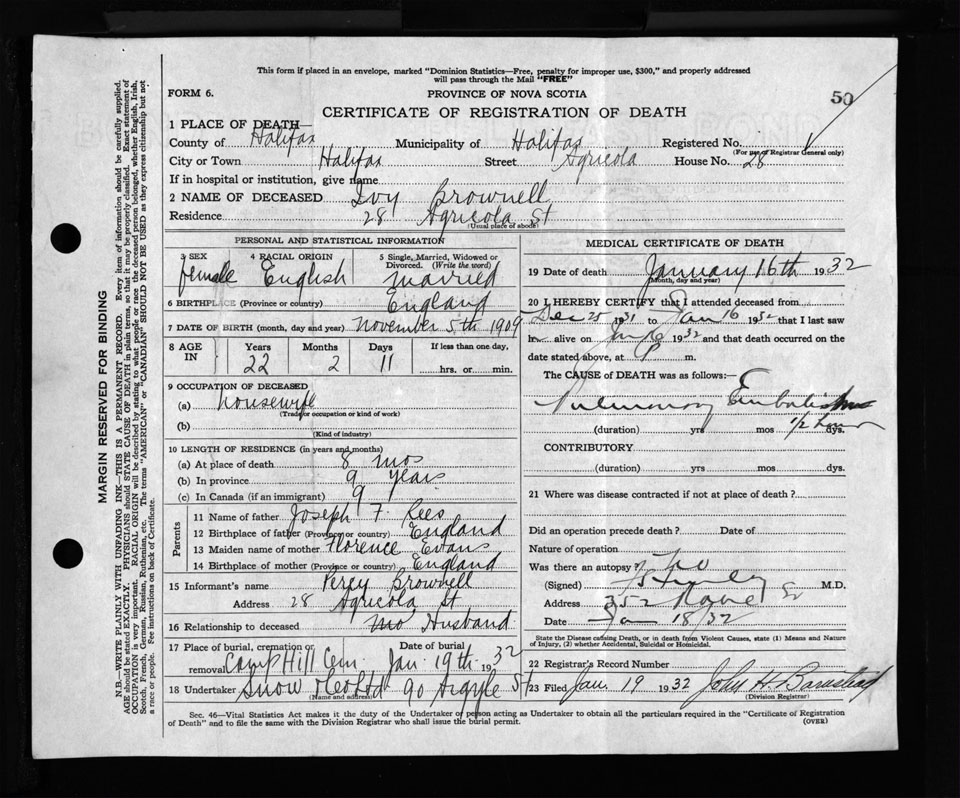 This form if placed in an envelope, marked "Dominion Statistics—Free, penalty for improper use, $300," and properly addressed
will pass through the Mail "FREE"
FORM 6.
PROVINCE OF NOVA SCOTIA
50
CERTIFICATE OF REGISTRATION OF DEATH
1 PLACE OF DEATH—
County of Halifax Municipality of Halifax Registered No.
(For use of Registrar General only)
City or Town Halifax Street Agricola House No. 28
If in hospital or institution, give name
2 NAME OF DECEASED Ivy Brownell
Residence 28 Agricola St
(Usual place of abode)
PERSONAL AND STATISTICAL INFORMATION
3 SEX 4 RACIAL ORIGIN 5 Single, Married, Widowed or Divorced. (Write the word)
female English married
6 BIRTHPLACE (Province or country) England
7 DATE OF BIRTH (month, day and year) November 5th 1909
8 AGE IN Years Months Days If less than one day,
22 2 11 hrs. or min.
9 OCCUPATION OF DECEASED
(a) Housewife
(Trade or occupation or kind of work)
(b)
(Kind of industry)
10 LENGTH OF RESIDENCE (in years and months)
(a) At place of death 8 mos
(b) In province 9 years
(c) In Canada (if an immigrant) 9
Parents
11 Name of father Joseph F. Rees
12 Birthplace of father (Province or country) England
13 Maiden name of mother Florence Evans
14 Birthplace of mother (Province or country) England
15 Informant's name Percy Brownell
Address 28 Agricola St
16 Relationship to deceased Husband
17 Place of burial, cremation or removal Date of burial
Camp Hill Cem. Jan. 19th 1932
18 Undertaker Snow & Co Ltd 90 Argyle St
(Name and address)
MEDICAL CERTIFICATE OF DEATH
19 Date of death January 16th 1932
(Month, day and year)
20 I HEREBY CERTIFY that I attended deceased from
Dec 25 1931 to Jan 16 1932 that I last saw
h alive on Jan 1932 and that death occurred on the
date stated above, at m.
The CAUSE of DEATH was as follows:—
Pulmonary Embolism
(duration) yrs mos dys.
1/2 hour
CONTRIBUTORY
(duration) yrs mos dys.
21 Where was disease contracted if not at place of death?
Did an operation precede death? Date of
Nature of operation
Was there an autopsy? no
(Signed) M.D.
Address 352 St
Date Jan 18/32
State the Disease causing Death, or in death from Violent Causes, state (1) Means and Nature
of Injury, (2) whether Accidental, Suicidal or Homicidal.
22 Registrar's Record Number
23 Filed Jan. 19 1932 John H. Barnstead
(Division Registrar)
Sec. 46—Vital Statistics Act makes it the duty of the Undertaker or person acting as Undertaker to obtain all the particulars required in the "Certificate of Registration
of Death" and to file the same with the Division Registrar who shall issue the burial permit.
(OVER)
MARGIN RESERVED FOR BINDING
N.B.—WRITE PLAINLY WITH UNFADING INK—THIS IS A PERMANENT RECORD. Every item of information should be carefully supplied.
AGE should be stated EXACTLY. PHYSICIANS should STATE CAUSE OF DEATH in plain terms, so that it may be properly classified. Exact statement of
OCCUPATION is very important. RACIAL ORIGIN will be described by stating to what people or race the deceased person belonged, whether English, Irish,
Scotch, French, German, Russian, Ruthenian, etc. The terms "AMERICAN" or "CANADIAN" SHOULD NOT BE USED as they express citizenship but not
a race or people. See instructions on back of Certificate.